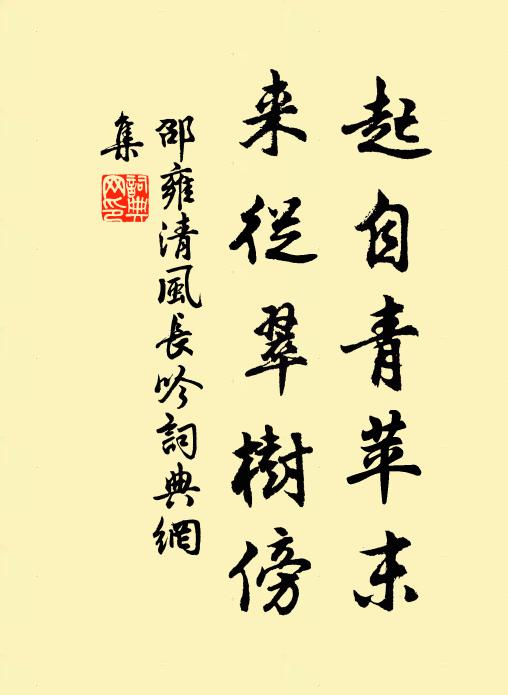 起自青苹末
来從翠樹傍
邵雍清風長吟詞典網
集
詞典
网印